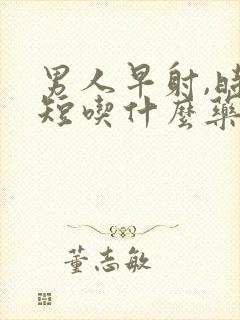 男人早射,時
短喫什麼藥
董志敏